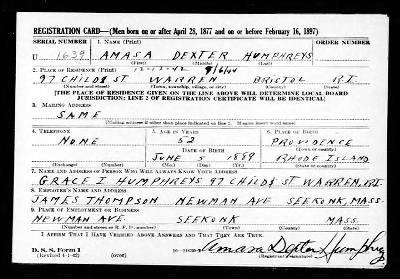 REGISTRATION CARD—(Men born on or after April 28, 1877 and on or before February 16, 1897)
SERIAL NUMBER 1. NAME (Print) ORDER NUMBER
U 1639 AMASA DEXTER HUMPHREYS
(First) (Middle) (Last)
2. PLACE OF RESIDENCE (Print) 12-12-42 9/6/44
97 CHILD ST WARREN BRISTOL R.I.
(Number and street) (Town, township, village, or city) (County) (State)
[THE PLACE OF RESIDENCE GIVEN ON THE LINE ABOVE WILL DETERMINE LOCAL BOARD
JURISDICTION; LINE 2 OF REGISTRATION CERTIFICATE WILL BE IDENTICAL]
3. MAILING ADDRESS
SAME
[Mailing address if other than place indicated on line 2. If same insert word same]
4. TELEPHONE 5. AGE IN YEARS 6. PLACE OF BIRTH
NONE 52 PROVIDENCE
DATE OF BIRTH (Town or county)
JUNE 5 1889 RHODE ISLAND
(Exchange) (Number) (Mo.) (Day) (Yr.) (State or country)
7. NAME AND ADDRESS OF PERSON WHO WILL ALWAYS KNOW YOUR ADDRESS
GRACE I HUMPHREYS 97 CHILD ST WARREN, R.I.
8. EMPLOYER'S NAME AND ADDRESS
JAMES THOMPSON NEWMAN AVE SEEKONK, MASS.
9. PLACE OF EMPLOYMENT OR BUSINESS
NEWMAN AVE. SEEKONK MASS.
(Number and street or R. F. D. number) (Town) (County) (State)
I AFFIRM THAT I HAVE VERIFIED ABOVE ANSWERS AND THAT THEY ARE TRUE.
D. S. S. Form 1
(Revised 4-1-42) (over) Amasa Dexter Humphreys
(Registrant's signature)